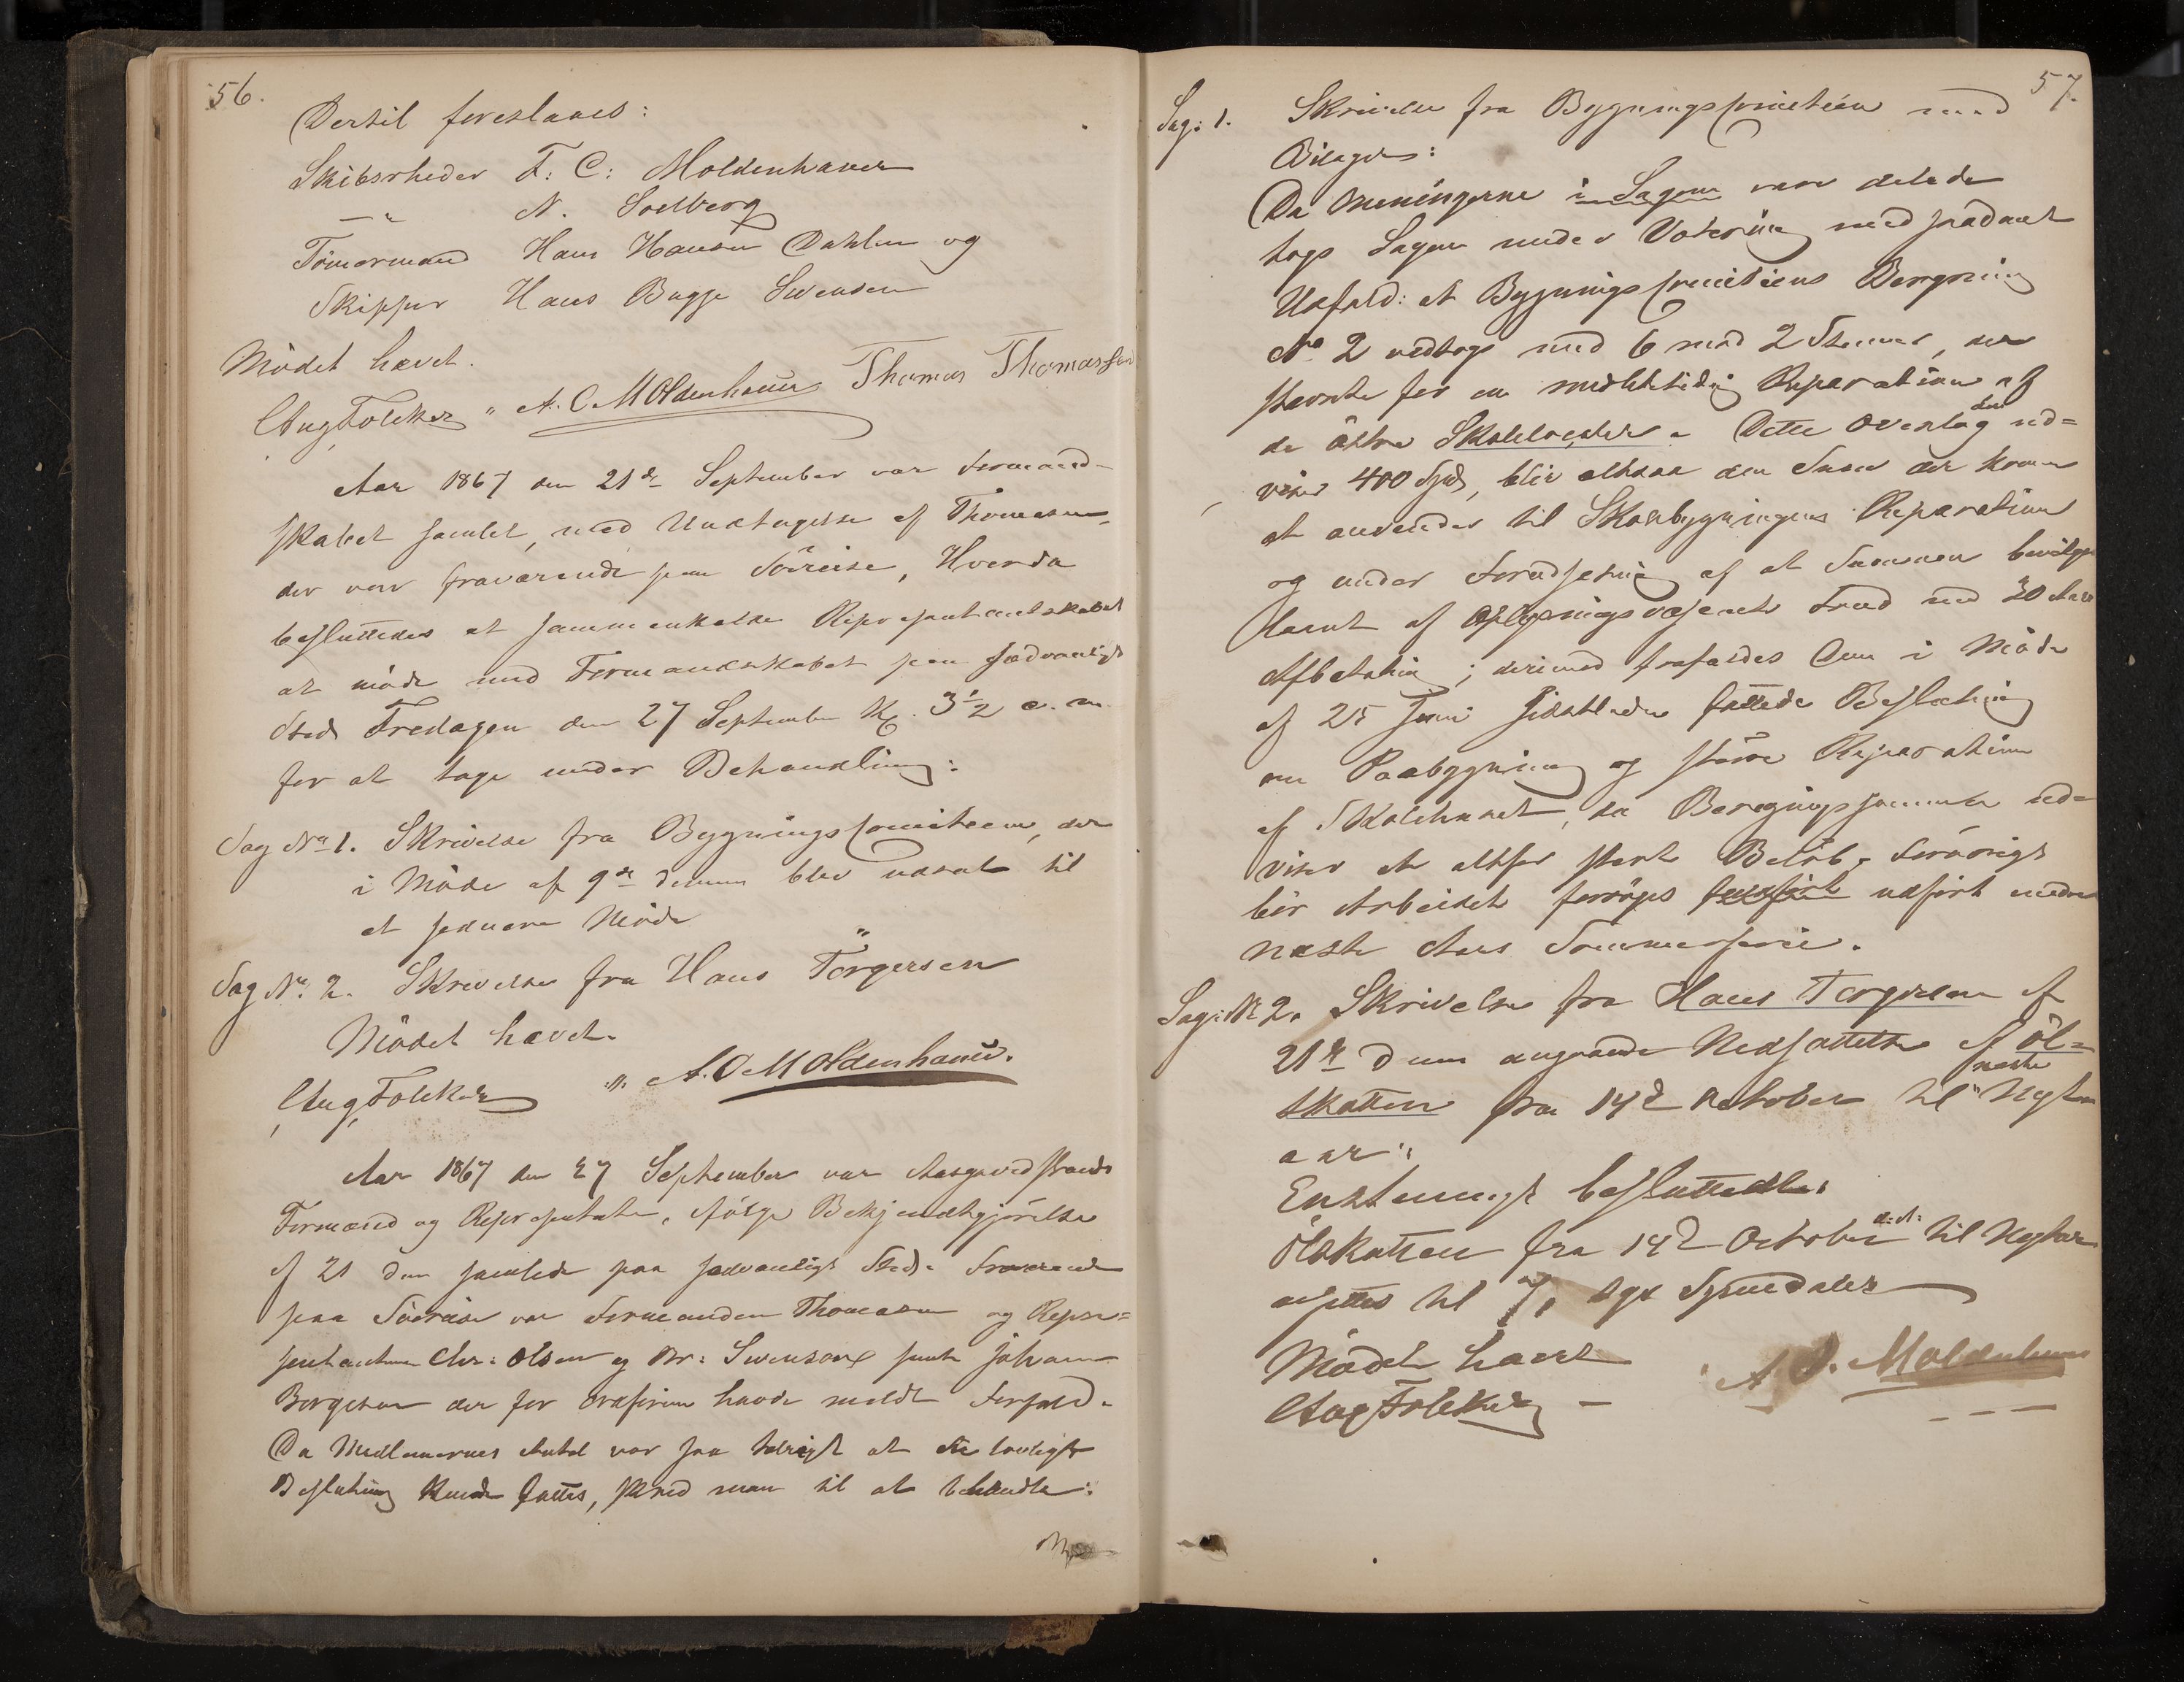 56.
Dertil foreslaaes:
Skibsrheder F: C: Moldenhauer
—"— N. Soelberg
Tömermand Hans Hansen Dahlen og
Skipper Hans Bugge Svendsen
Mödet hævet.
Aug Folcker " A. C. Moldenhauer Thomas Thomassen
Aar 1867 den 21de September var Formand-
skabet samlet, med Undtagelse af Thomesen,
der var fraværende paa Söreise, Hvorda
besluttedes at sammenkalde Repræsentantskabet
at möde med Formandskabet paa sædvanligt
Sted Fredagen den 27 September Kl. 3½ e. m.
for at tage under Behandling:
Sag No 1. Skrivelse fra Bygningscomiteen, der
i Möde af 9de dennes blev udsat til
et senere Möde
Sag No. 2. Skrivelse fra Hans Törgersen
Mödet hævet.
Aug Folcker " A. C. Moldenhauer.
Aar 1867 den 27 September var Aasgaardstrands
Formænd og Repræsentanter, ifölge Bekjendtgjörelse
af 21 dens samlede paa sædvanligt Sted. Fraværende
paa Söreise var Formanden Thomesen og Repræ=
sentanterne Chr: Olsen og Br: Svensen samt Johan
Borgesen der for havde meldt Forfald.
Da Medlemernes Antal var saa talrigt at lovligt
Beslutning kunde fattes, skred man til at behandle:
57.
Sag: 1. Skrivelse fra Bygningscomiteen med
Bilager:
Da Meningerne i Sagen var delede
togs Sagen under Votering med saadant
Udfald: at Bygningscomiteens Beregning
No 2 vedtogs med 6 mod 2 Stemer, der
stemte for en midlertidig Reparation af
de Skoleloculer. Dette Overslag der ud=
viser 400 Spd, blir altsaa den Sum der kommer
at anvendes til Skolebygningens Reparation
og under Forudsetning af at Summen bevilges
laant af Oplysningsvæsenets Fond med 20 Aars
Afbetaling; derimod frafaldes Den i Möde
af 25 Juni sidstleden fattede Beslutning
om Paabygning og större Reparation
af Skolehuset, da Beregningssummen ud-
viser et altfor stort Belöb. Forövrigt
bör Arbeidet forsöges udfört under
næste Aars Sommerferie.
Sag: No 2. Skrivelse fra Hans Torgersen af
21de dens angaaende Nedsættelse af Öl=
skatten fra 14de October til næste Nyt
aar:
Enstemigt besluttedes
Ölskatten fra 14de October d: A: til Nytaar
nedsettes til 7, syv Speciedaler
Mödet hævet
Aug Folcker — A C. Moldenhauer